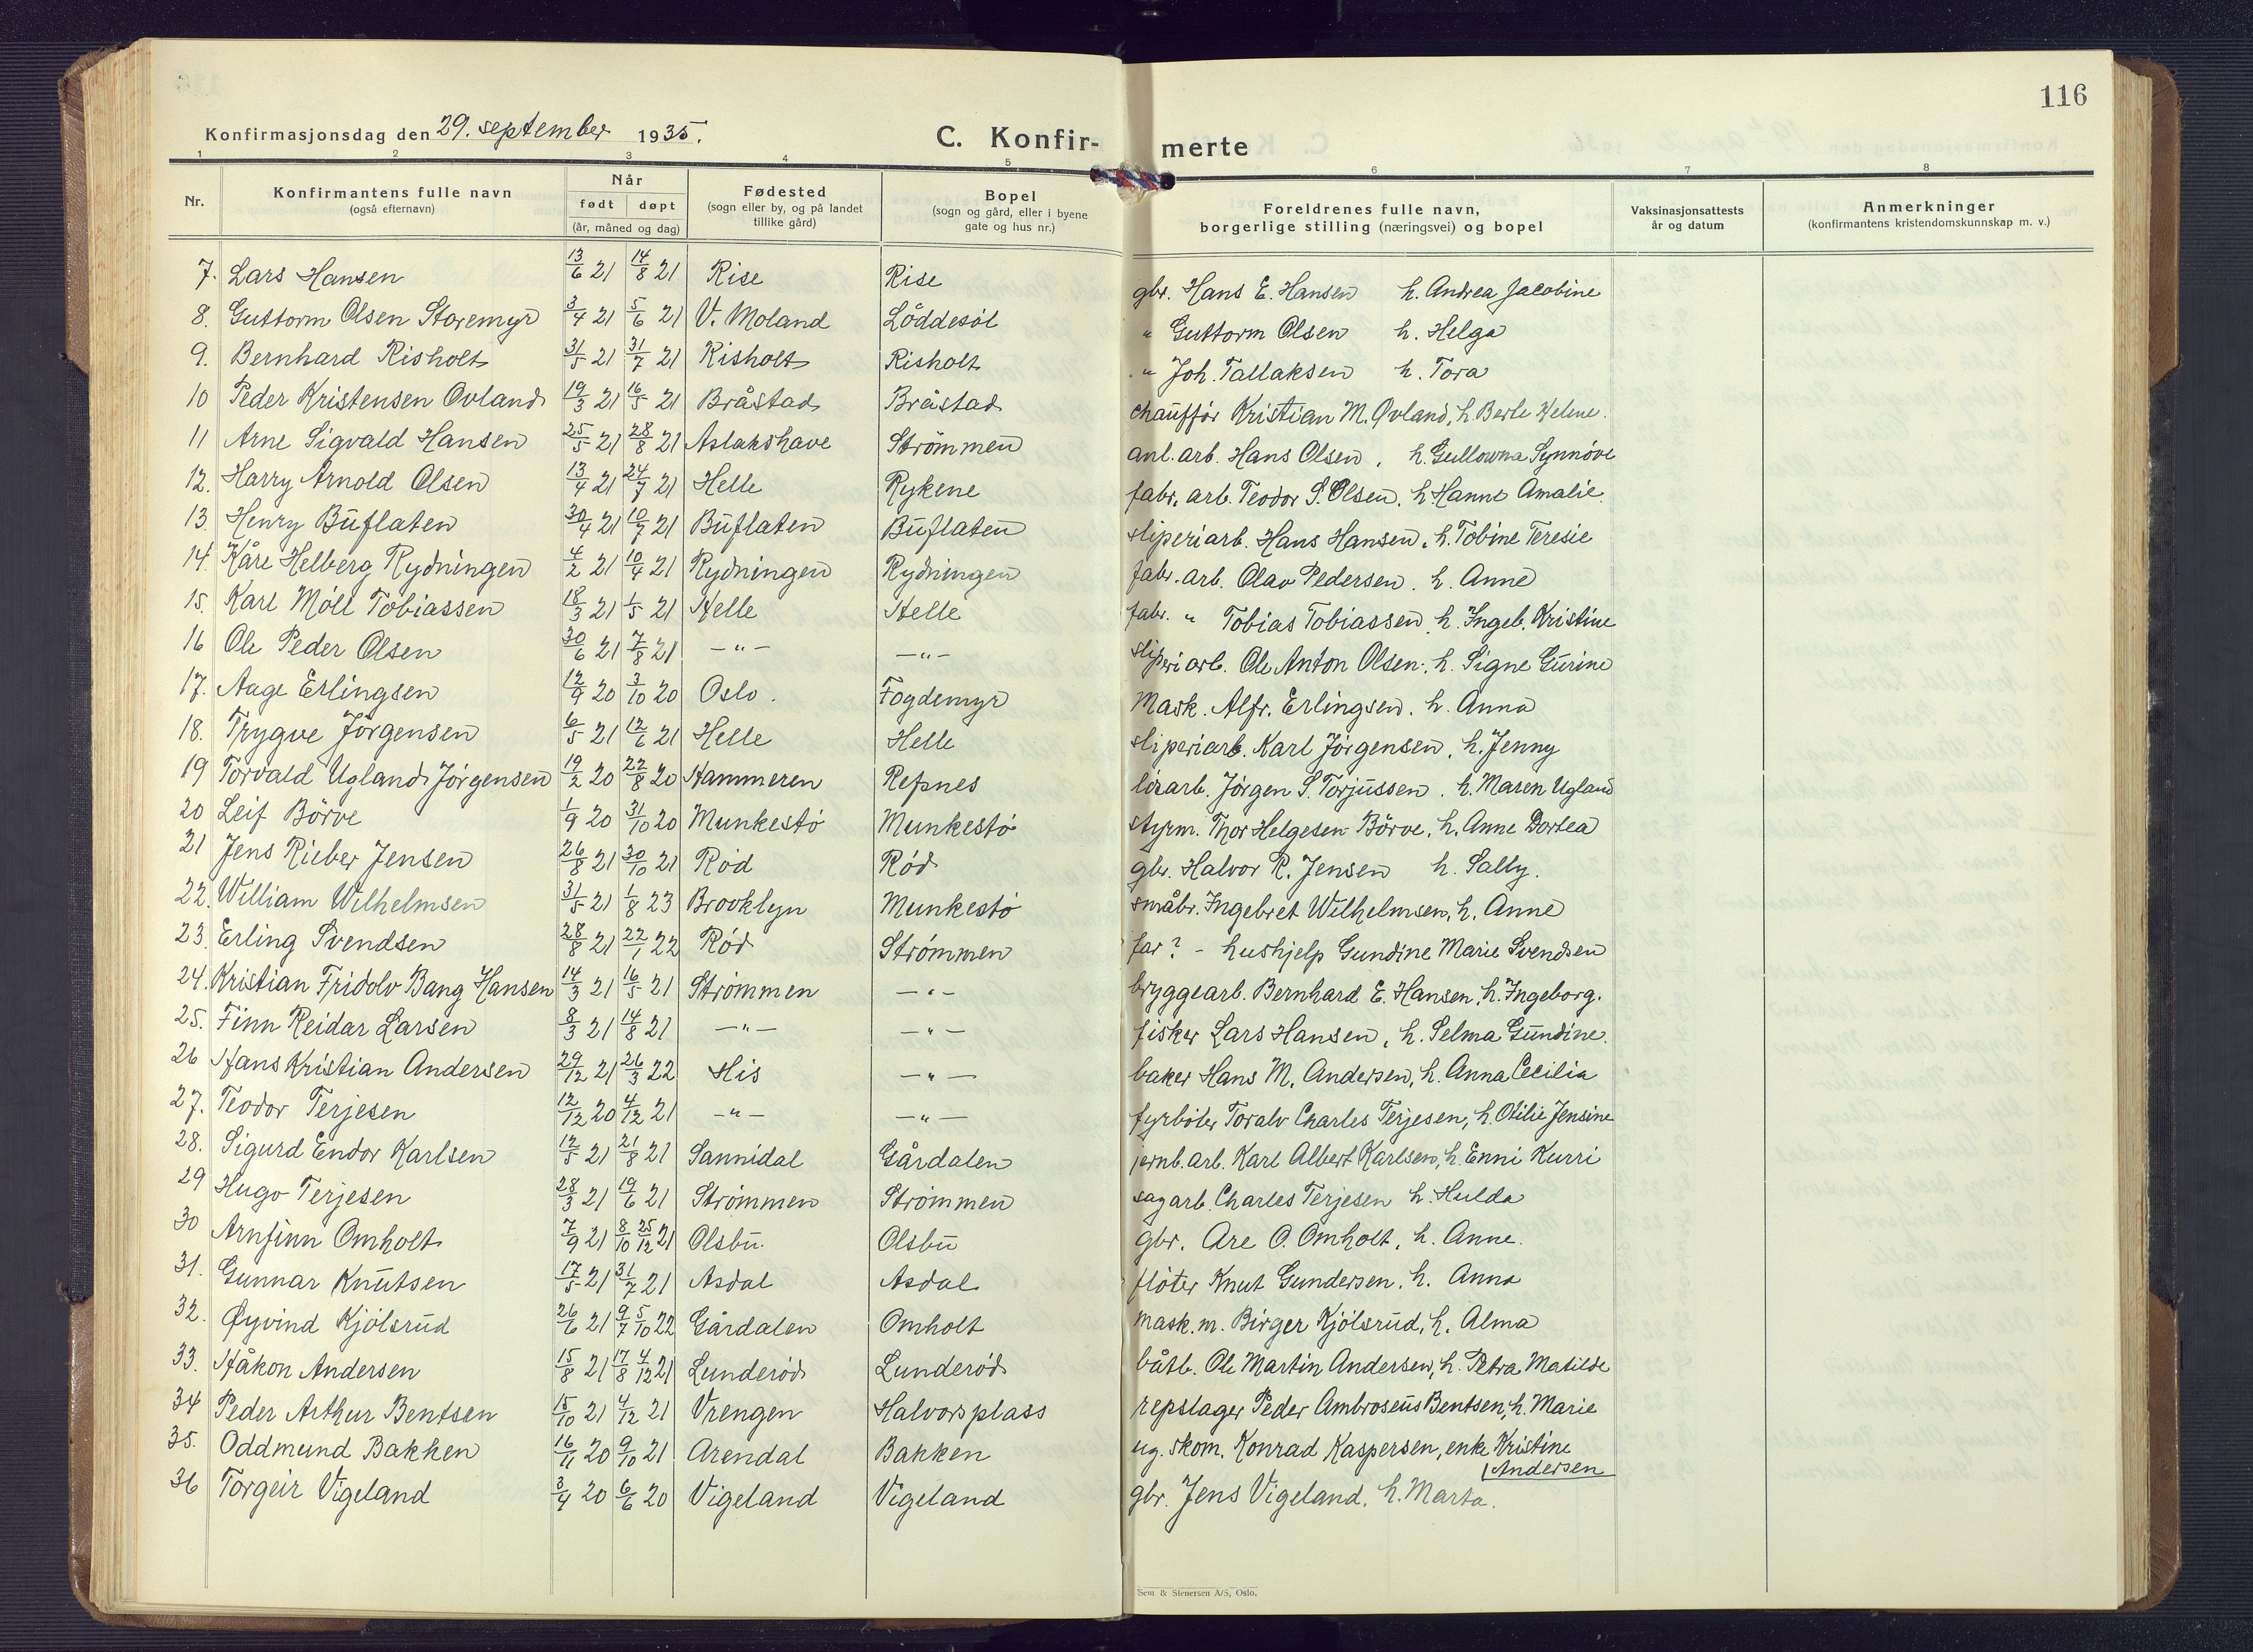 116
Konfirmasjonsdag den 29. september 1935.
C. Konfir-
merte
1 2 3 4 5 6 7 8
Nr.
Konfirmantens fulle navn
(også efternavn)
Når
født døpt
(år, måned og dag)
Fødested
(sogn eller by, og på landet
tillike gård)
Bopel
(sogn og gård, eller i byene
gate og hus nr.)
Foreldrenes fulle navn,
borgerlige stilling (næringsvei) og bopel
Vaksinasjonsattests
år og datum
Anmerkninger
(konfirmantens kristendomskunnskap m. v.)
7. Lars Hansen 13/6 21 14/8 21 Rise Rise gbr. Hans E. Hansen h. Andrea Jacobine
8. Guttorm Olsen Storemyr 3/4 21 5/6 21 V. Moland Löddesöl " Guttorm Olsen h. Helga
9. Bernhard Risholt 31/5 21 31/7 21 Risholt Risholt " Joh. Tallaksen h. Tora
10 Peder Kristensen Ovland 19/3 21 16/5 21 Bråstad Bråstad chauffør Kristian M. Øvland, h. Berle Helene.
11 Arne Sigvald Hansen 25/5 21 28/8 21 Aslakshave Strømmen anl. arb. Hans Olsen, h. Gullowna Synnøve
12. Harry Arnold Olsen 13/4 21 24/7 21 Helle Rykene fabr. arb. Teodor S. Olsen, h. Hanne Amalie.
13. Henry Buflaten 30/4 21 10/7 21 Buflaten Buflaten sliperiarb. Hans Hansen, h. Tobine Teresie
14. Kåre Helberg Rydningen 4/2 21 10/4 21 Rydningen Rydningen fabr. arb. Olav Pedersen. h. Anne
15. Karl Möll Tobiassen 18/3 21 1/5 21 Helle Helle fabr. " Tobias Tobiassen, h. Ingeb. Kristine
16 Ole Peder Olsen 30/6 21 7/8 21 -"- -"- sliperiarb. Ole Anton Olsen, h. Signe Gurine
17. Aage Erlingsen 12/9 20 3/10 20 Oslo. Fogdemyr Mask. Alfr. Erlingsen. h. Anna
18. Trygve Jörgensen 6/5 21 12/6 21 Helle Helle sliperiarb. Karl Jørgensen, h. Jenny
19 Torvald Ugland Jørgensen 19/2 20 22/8 20 Hammeren Refsnes Jørgen S. Torjussen. h. Maren Ugland
20 Leif Börve 1/9 20 31/10 20 Munkestø Munkestø styrm. Thor Helgesen Børve, h. Anne Dortea
21 Jens Rieber Jensen 26/8 21 30/10 21 Rød Rød gbr. Halvor R. Jensen h. Sally.
22. William Wilhelmsen 31/5 21 1/8 23 Brooklyn Munkestø småbr. Ingebret Wilhelmsen, h. Anne
23. Erling Svendsen 28/8 21 22/1 22 Rød Strømmen far? - hushjelp Gundine Marie Svendsen
24. Kristian Fridolv Bang Hansen 14/3 21 16/5 21 Strømmen -"- bryggearb. Bernhard E. Hansen, h. Ingeborg.
25. Finn Reidar Larsen 8/3 21 14/8 21 -"- -"- fisker Lars Hansen, h. Selma Gundine.
26 Hans Kristian Andersen 29/12 21 26/3 22 His -"- baker Hans M. Andersen, h. Anna Cecilia
27. Teodor Terjesen 12/12 20 4/12 21 -"- -"- fyrbøter Toralv Charles Terjesen, h. Otilie Jensine
28. Sigurd Endor Karlsen 12/5 21 21/8 21 Sannidal Gårdalen jernb. arb. Karl Albert Karlsen, h. Enni Kurri
29 Hugo Terjesen 28/3 21 19/6 21 Strømmen Strømmen sagarb. Charles Terjesen h. Hulda
30 Arnfinn Omholt 7/9 21 8/10 25/12 21 Olsbu. Olsbu gbr. Are O. Omholt, h. Anne.
31. Gunnar Knutsen 17/5 21 31/7 21 Asdal Asdal fløter Knut Gundersen, h. Anna
32. Øyvind Kjølsrud 26/6 21 9/7 5/10 22 Gårdalen Omholt mask. m. Birger Kjølsrud, h. Alma
33. Håkon Andersen 15/8 21 17/8 4/12 21 Lunderød Lunderød båtb. Ole Martin Andersen, h. Petra Matilde
34 Peder Arthur Bentsen 15/10 21 4/12 21 Vrengen Halvorsplass repslager Peder Ambroseus Bentsen, h. Marie
35. Oddmund Bakken 16/11 20 9/10 21 Arendal Bakken ug. skom. Konrad Kaspersen, enke Kristine
Andersen
36 Torgeir Vigeland 3/4 20 6/6 20 Vigeland Vigeland gbr. Jens Vigeland. h. Marta.
Sem & Stenersen A/S, Oslo.